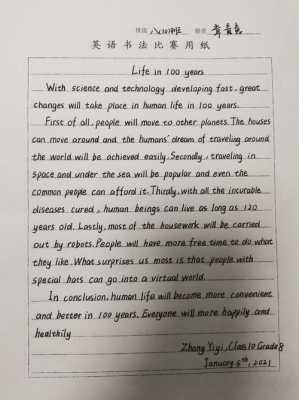 班级 八(10)班 姓名
英语书法比赛用纸
Life in 100 years
With science and technology developing fast, great
changes will take place in human life in 100 years.
First of all, people will move to other planets. The houses
can move around and the humans' dream of traveling around
the world will be achieved easily. Secondly, traveling in
space and under the sea will be popular and even the
common people can afford it. Thirdly, with all the incurable
diseases cured, human beings can live as long as 120
years old. Lastly, most of the housework will be carried
out by robots. People will have more free time to do what
they like. What surprises us most is that people with
special hats can go into a virtual world.
In conclusion, human life will become more convenient
and better in 100 years. Everyone will more happily and
healthily
Zhang Yiyi, Class 10 Grade 8
January 6th, 2021